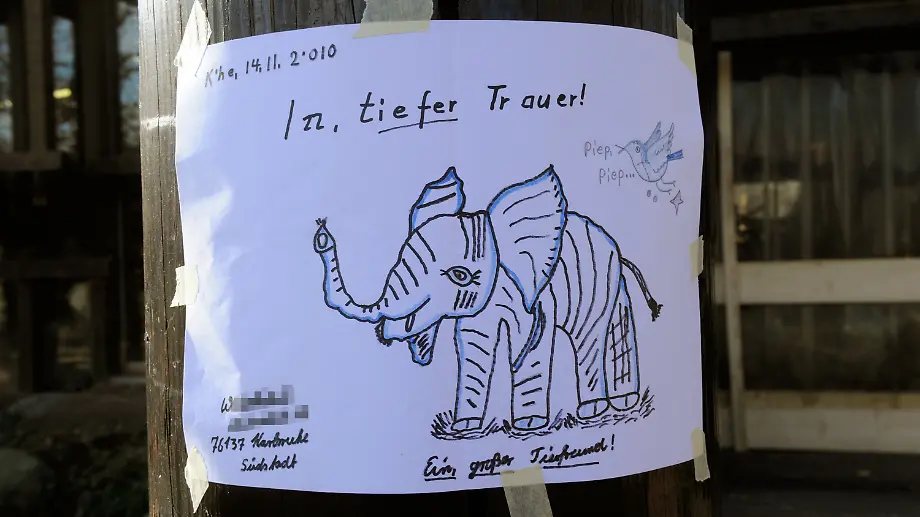 K'he, 14.11. 2·010
In, tiefer Trauer!
Piep,
Piep...
76137 Karlsruhe
Südstadt
Ein, großer Tierfreund!